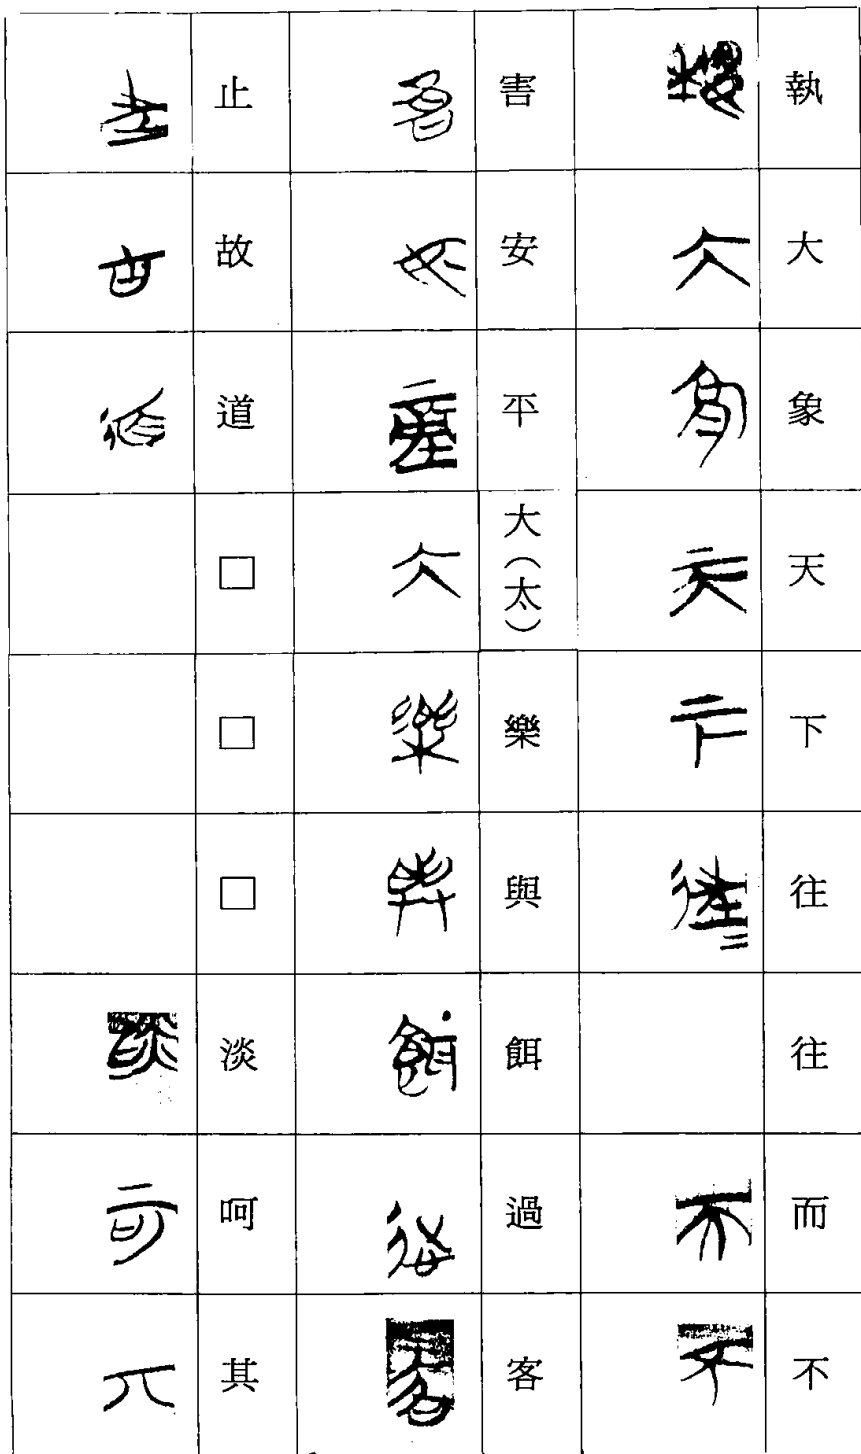 執大象天下往往而不
害安平大(太)樂與餌過客
止故道□□□淡呵其